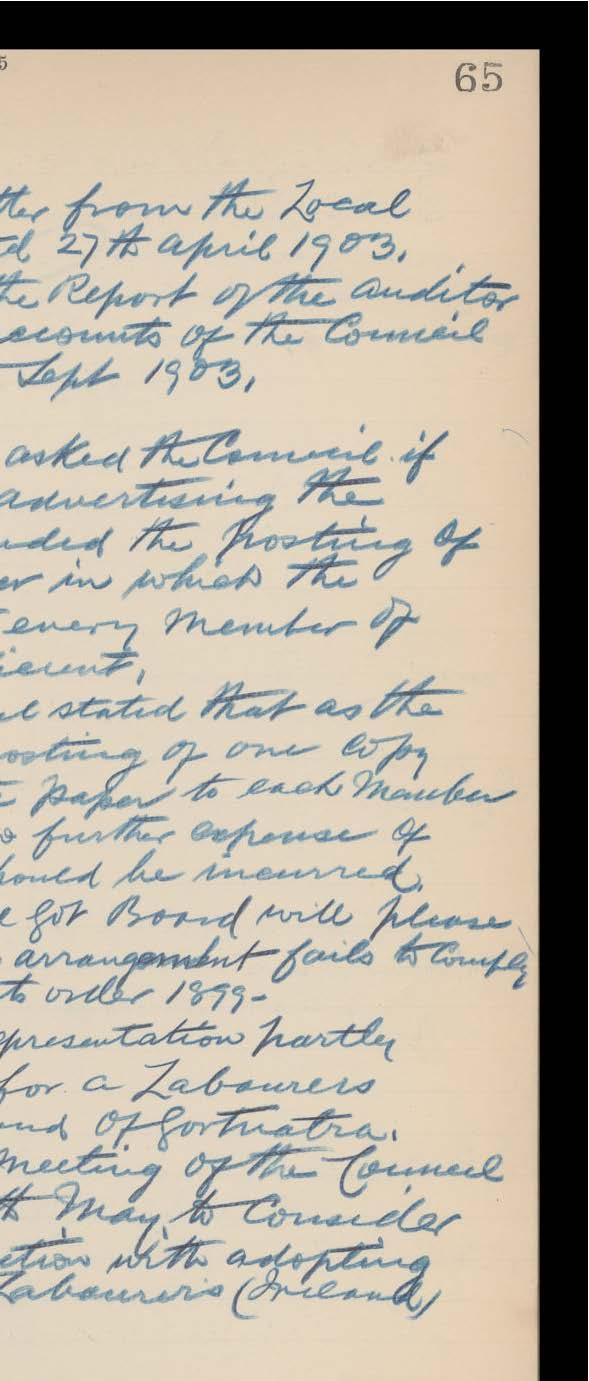 5
65
tter from the Local
ed 27th April 1903.
the Report of the Auditor
ccounts of the Council
Sept 1903.
asked the Council if
advertising the
uded the posting of
er in which the
every Member of
icient.
il stated that as the
osting of one Copy
paper to each Member
o further expense of
hould be incurred.
l Govt Board will please
arrangement fails to Comply
ts order 1899-
epresentation partly
for a Labourers
and of Gortnatra.
meeting of the Council
th May to Consider
ction with adopting
Labourers (Ireland)